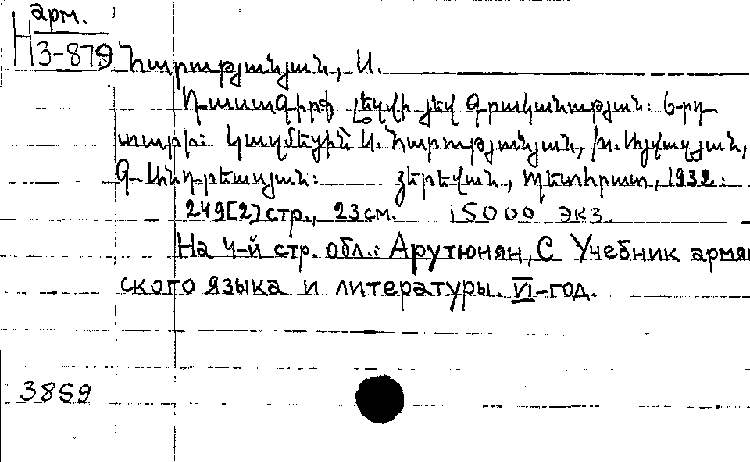 арм.
Н3-879
Հարությունյան, Ս.
Դասագիրք լեզվի յեվ գրականության: 6-րդ
տարի: Կազմեցին Ս. Հարությունյան, Խ. Այվազյան,
Գ. Անդրեասյան: Յերեվան, Պետհրատ, 1932:
249[2] стр., 23 см. 5000 экз.
На 4-й стр. обл.: Арутюнян, С Учебник армян
ского языка и литературы. VI-год.
3859